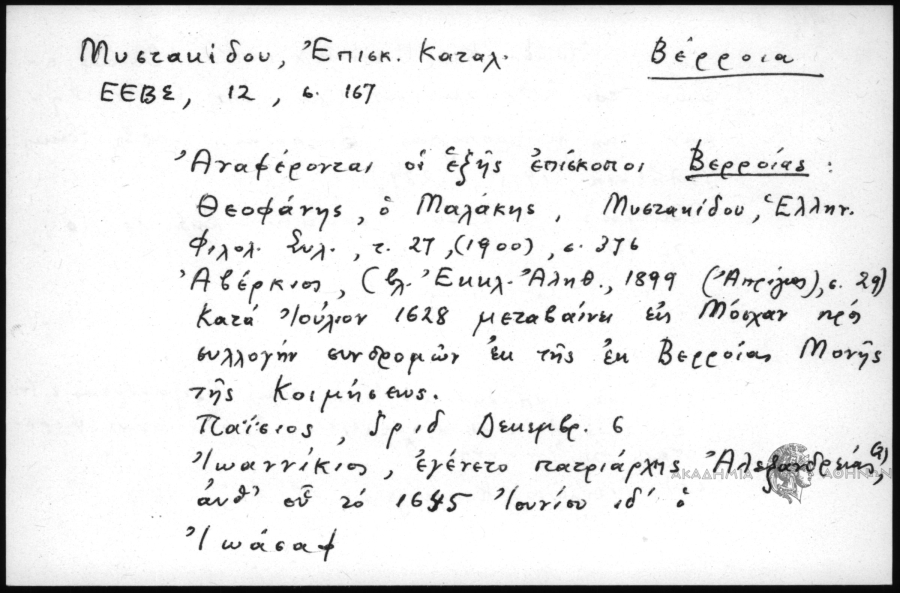 Μυστακίδου, Ἐπισκ. Καταλ. Βέρροια
ΕΕΒΣ, 12, σ. 167
Ἀναφέρονται οἱ ἑξῆς ἐπίσκοποι Βερροίας:
Θεοφάνης, ὁ Μαλάκης, Μυστακίδου, Ἑλλην.
Φιλολ. Συλ., τ. 27, (1900), σ. 376
Ἀβέρκιος, (βλ. Ἐκκλ. Ἀληθ., 1899 (Ἀπρίλιος), σ. 29)
Κατά Ἰούλιον 1628 μεταβαίνει εἰς Μόσχαν πρός
συλλογήν συνδρομῶν ἐκ τῆς ἐκ Βερροίας Μονῆς
τῆς Κοιμήσεως.
Παΐσιος, Δεκεμβρ. 6
Ἰωαννίκιος, ἐγένετο πατριάρχης Ἀλεξανδρείας,
ἀνθ' οὗ τό 1645 Ἰουνίου ιδ' ὁ
Ἰωάσαφ
ΑΚΑΔΗΜΙΑ ΑΘΗΝΩΝ